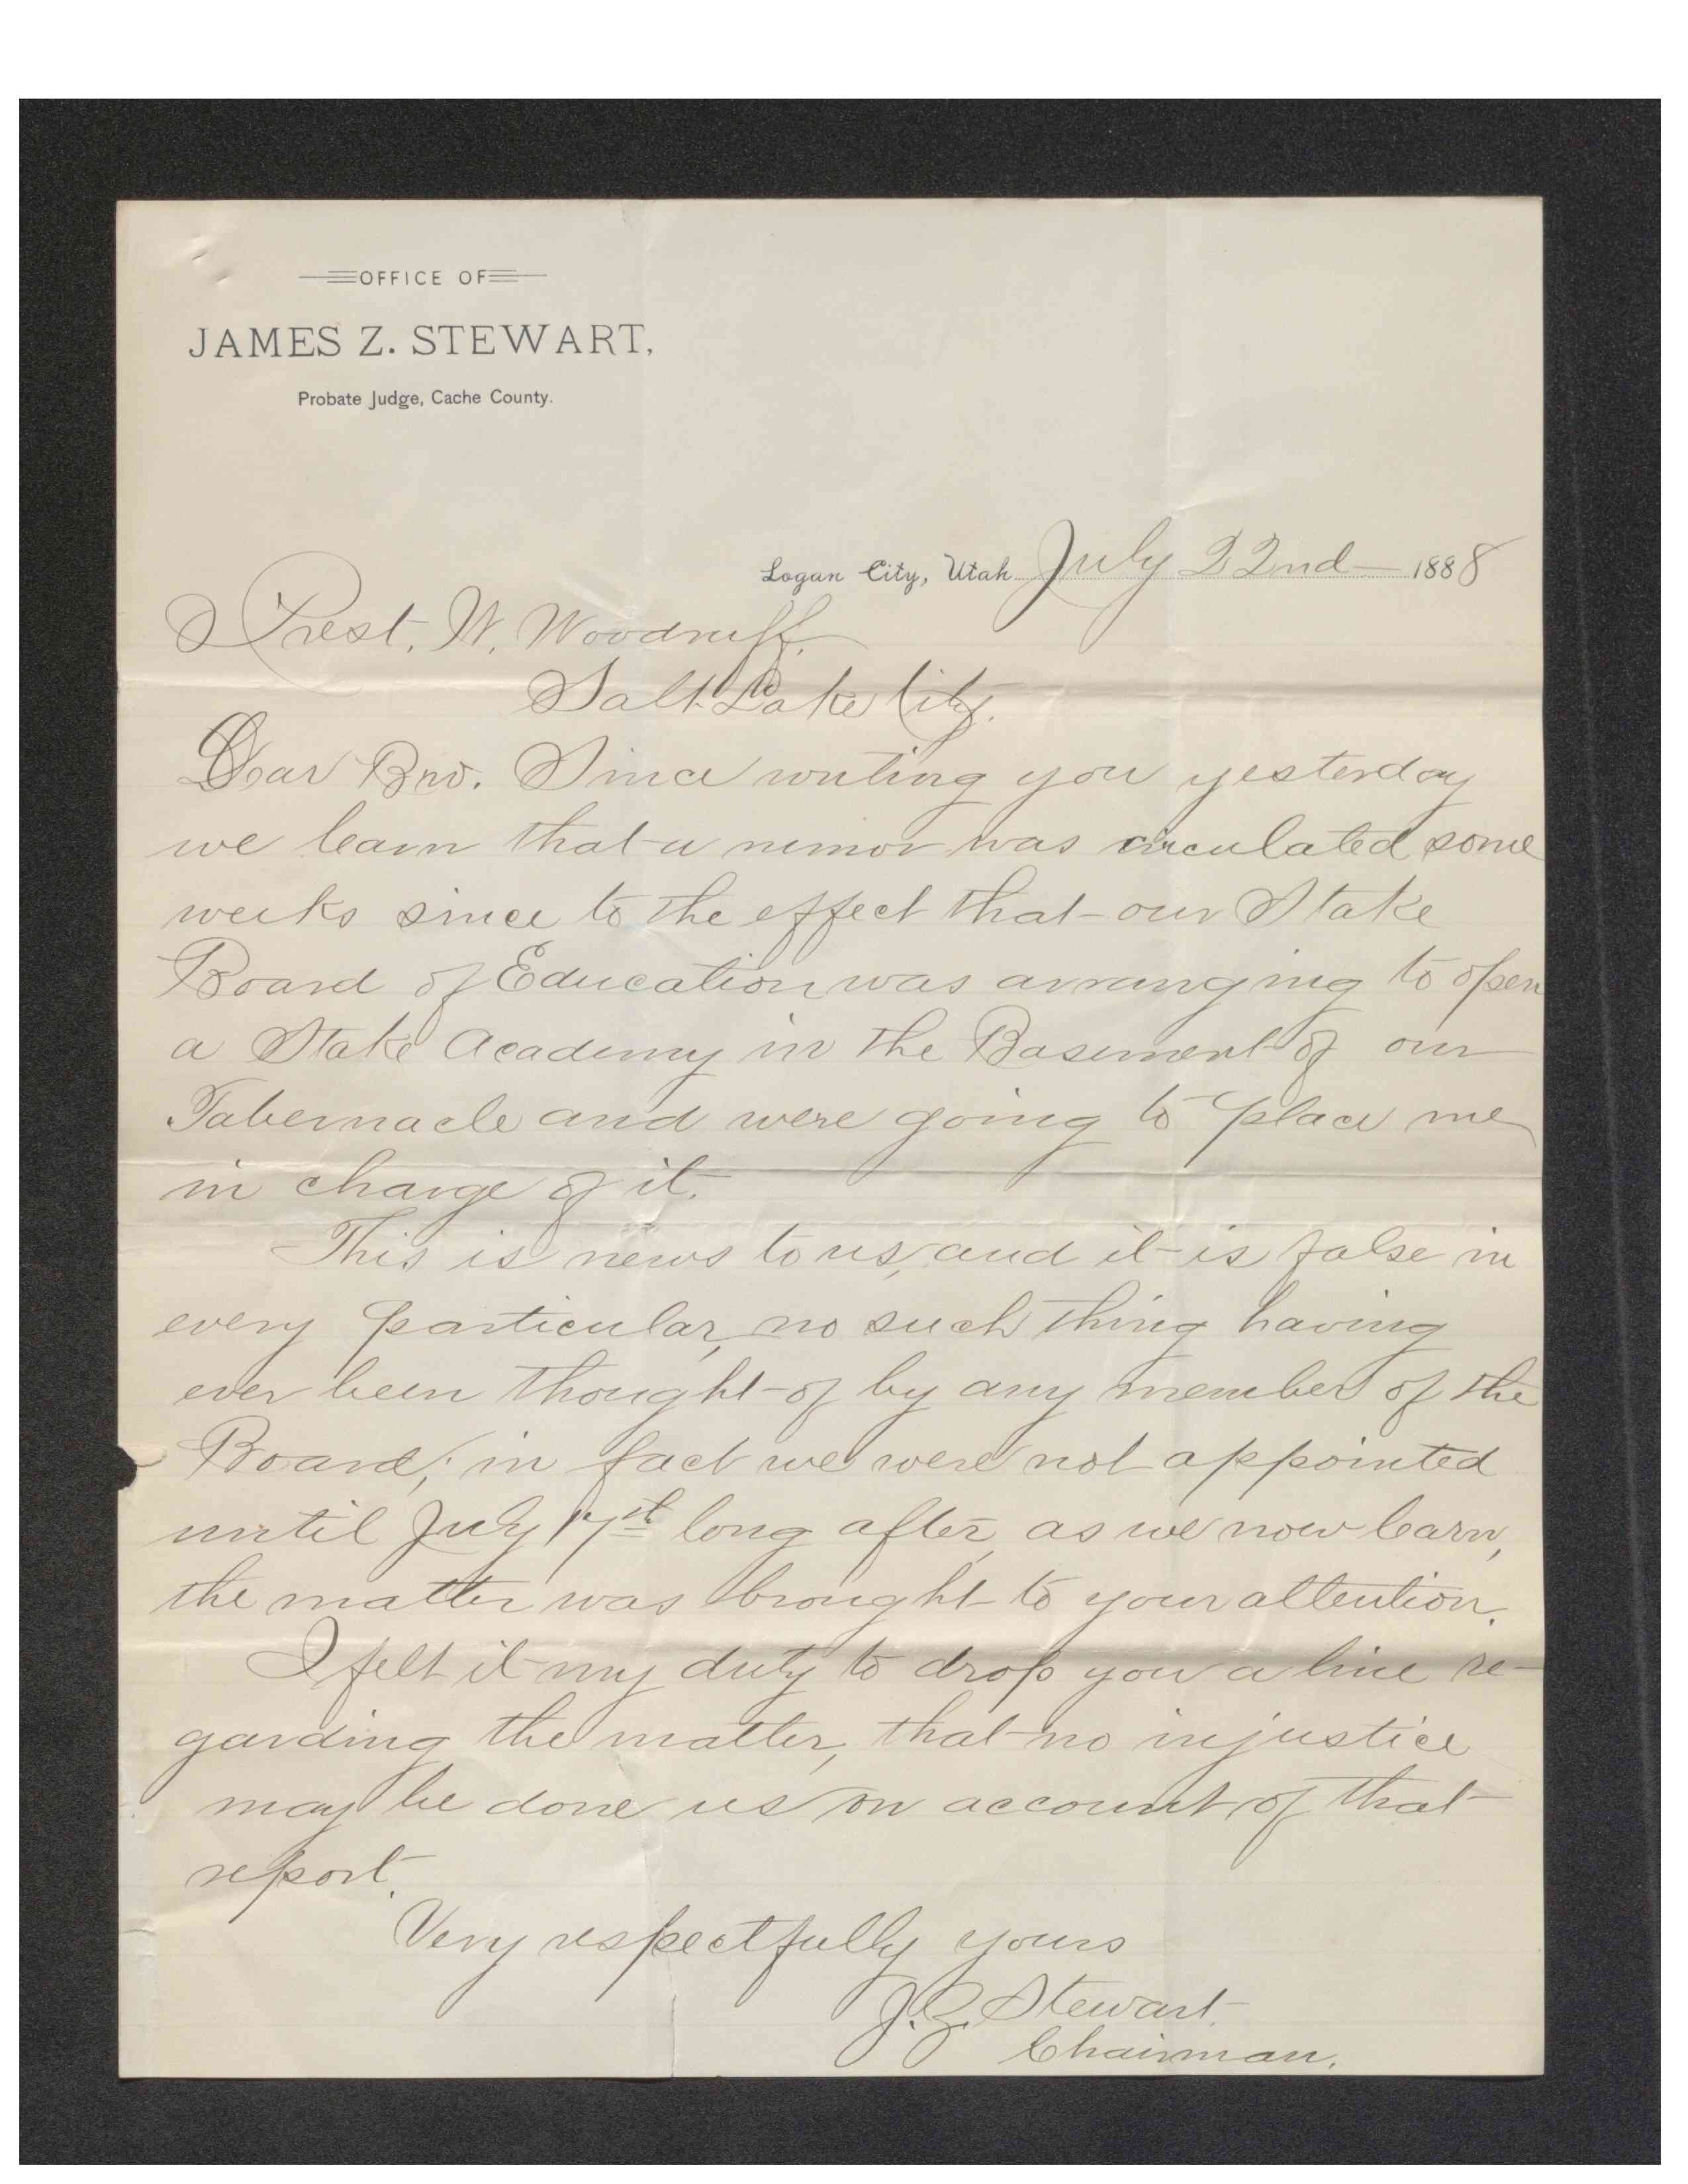 OFFICE OF
JAMES Z. STEWART,
Probate Judge, Cache County.
Logan City, Utah July 22nd 1888
Prest. W. Woodruff.
Salt Lake City.
Dear Bro. Since writing you yesterday
we learn that a rumor was circulated some
weeks since to the effect that our Stake
Board of Education was arranging to open
a Stake Academy in the Basement of our
Tabernacle and were going to place me
in charge of it.
This is news to us, and it is false in
every particular, no such thing having
ever been thought of by any member of the
Board; in fact we were not appointed
until July 17st long after, as we now learn,
the matter was brought to your attention.
I felt it my duty to drop you a line re-
garding the matter, that no injustice
may be done us on account of that
report.
Very respectfully yours
J.Z. Stewart.
Chairman.